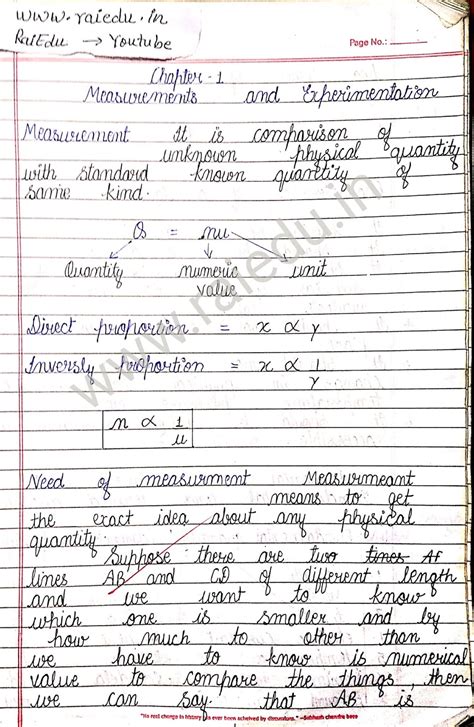 www.raiedu.in
RaiEdu → Youtube
Page No.:
Chapter - 1
Measurements and Experimentation
Measurement It is comparison of
unknown physical quantity
with standard known quantity of
same kind.
Q = nu
Quantity numeric unit
value
Direct proportion = x ∝ y
Inversly proportion = x ∝ 1/y
n ∝ 1/u
Need of measurment Measurmeant
means to get
the exact idea about any physical
quantity.
Suppose there are two times Af
lines AB and CD of different length
and we want to know
which one is smaller and by
how much to other than
we have to know is numerical
value to compare the things, then
we can say that AB is
"No real change in history has ever been achieved by discussions." —Subhash chandra bose
www.raiedu.in